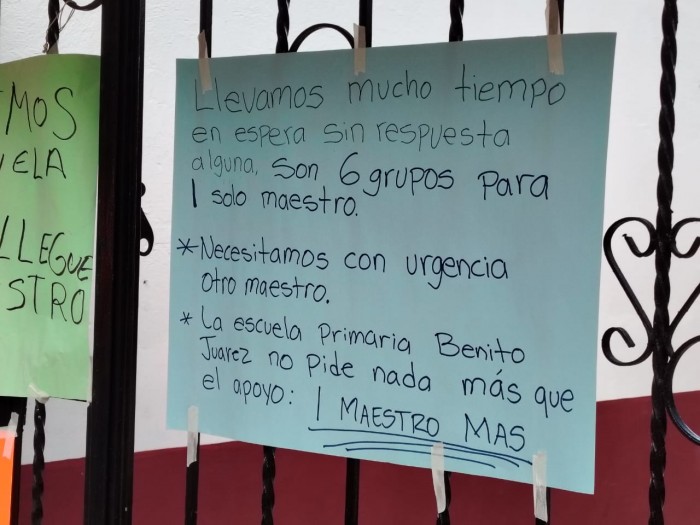 MOS
ELA
LLEGUE
STRO
Llevamos mucho tiempo
en espera sin respuesta
alguna, son 6 grupos para
1 solo maestro.
* Necesitamos con urgencia
otro maestro.
* La escuela Primaria Benito
Juarez no pide nada más que
el apoyo: 1 MAESTRO MAS